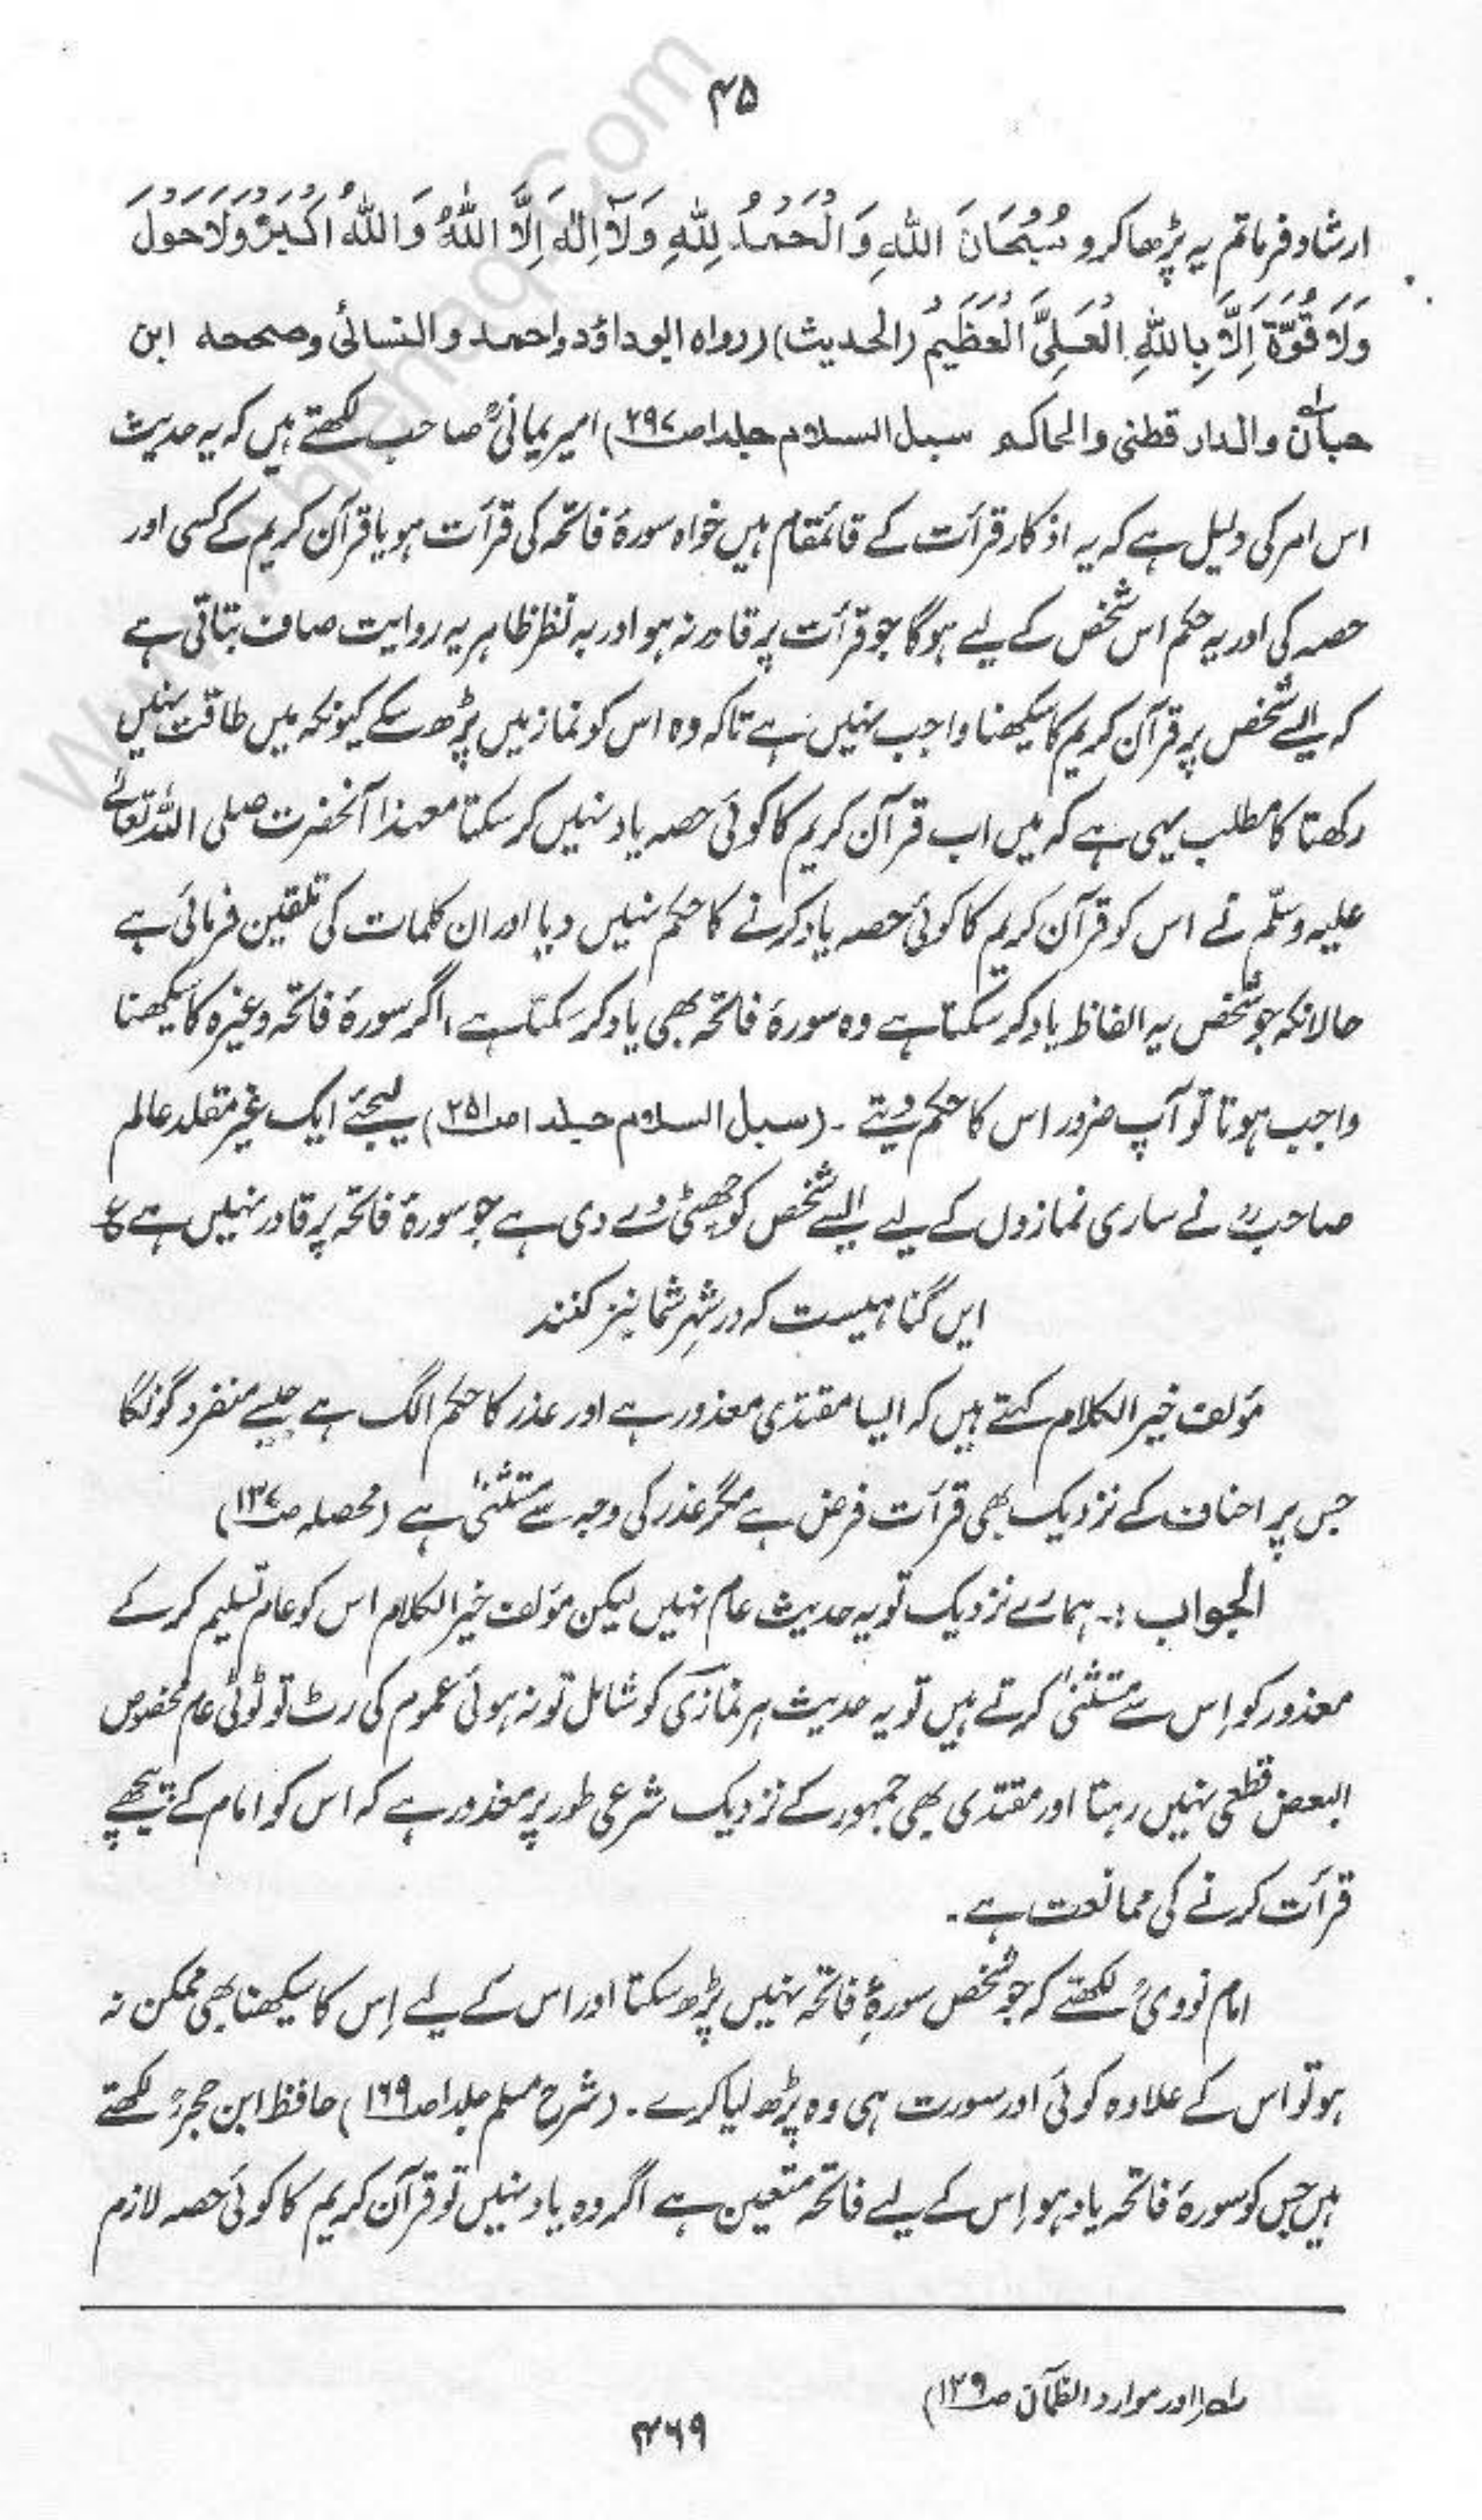 ۴۵
ارشاد فرما تم یہ پڑھا کرو سُبُحَانَ اللهِ وَالْحَمْدُ لِلّٰهِ وَلَآ اِلٰهَ اِلَّا اللهُ وَاللهُ اَکْبَرُ وَلَا حَوْلَ
وَلَا قُوَّةَ اِلَّا بِاللهِ الْعَلِیِّ الْعَظِیْمِ (الحدیث) (رواہ ابوداؤد واحمد والنسائی وصححہ ابن
حبانؒ۱ والدار قطنی والحاکم سبل السلام جلد۱ ص۲۹۷) امیر یمانیؒ صاحب لکھتے ہیں کہ یہ حدیث
اس امر کی دلیل ہے کہ یہ اذکار قرأت کے قائمقام ہیں خواہ سورۂ فاتحہ کی قرأت ہو یا قرآن کریم کے کسی اور
حصہ کی اور یہ حکم اس شخص کے لیے ہوگا جو قرأت پر قادر نہ ہو اور بہ نظر ظاہر یہ روایت صاف بتاتی ہے
کہ ایسے شخص پر قرآن کریم کا سیکھنا واجب نہیں ہے تاکہ وہ اس کو نماز میں پڑھ سکے کیونکہ میں طاقت نہیں
رکھتا کا مطلب یہی ہے کہ میں اب قرآن کریم کا کوئی حصہ یاد نہیں کر سکتا معہذا آنحضرت صلی اللہ تعالےٰ
علیہ وسلّم نے اس کو قرآن کریم کا کوئی حصہ یاد کرنے کا حکم نہیں دیا اور ان کلمات کی تلقین فرمائی ہے
حالانکہ جو شخص یہ الفاظ یاد کر سکتا ہے وہ سورۂ فاتحہ بھی یاد کر سکتا ہے، اگر سورۂ فاتحہ وغیرہ کا سیکھنا
واجب ہوتا تو آپ ضرور اس کا حکم دیتے ۔ (سبل السلام جلد۱ ص۲۵۱) لیجئے ایک غیر مقلد عالم
صاحبؒ نے ساری نمازوں کے لیے ایسے شخص کو چھٹی دے دی ہے جو سورۂ فاتحہ پر قادر نہیں ہے ع
ایں گناہیست کہ در شہر شما نیز کنند
مؤلف خیر الکلام کہتے ہیں کہ ایسا مقتدی معذور ہے اور عذر کا حکم الگ ہے جیسے منفرد گونگا
جس پر احناف کے نزدیک بھی قرأت فرض ہے مگر عذر کی وجہ سے مستثنیٰ ہے (محصلہ ص۱۳۷)
الجواب :۔ ہمارے نزدیک تو یہ حدیث عام نہیں لیکن مؤلف خیر الکلام اس کو عام تسلیم کر کے
معذور کو اِس سے مستثنیٰ کرتے ہیں تو یہ حدیث ہر نمازی کو شامل تو نہ ہوئی عموم کی رٹ تو ٹوٹی عام مخصوص
البعض قطعی نہیں رہتا اور مقتدی بھی جمہور کے نزدیک شرعی طور پر معذور ہے کہ اس کو امام کے پیچھے
قرأت کرنے کی ممانعت ہے۔
امام نوویؒ لکھتے کہ جو شخص سورۂ فاتحہ نہیں پڑھ سکتا اور اس کے لیے اِس کا سیکھنا بھی ممکن نہ
ہو تو اس کے علاوہ کوئی اور سورت ہی وہ پڑھ لیا کرے۔ (شرح مسلم جلد۱ ص۱۶۹) حافظ ابن حجرؒ لکھتے
ہیں جس کو سورۂ فاتحہ یاد ہو اِس کے لیے فاتحہ متعین ہے اگر وہ یاد نہیں تو قرآن کریم کا کوئی حصہ لازم
اور موارد الظمآن ص۱۲۹)
۴۶۹